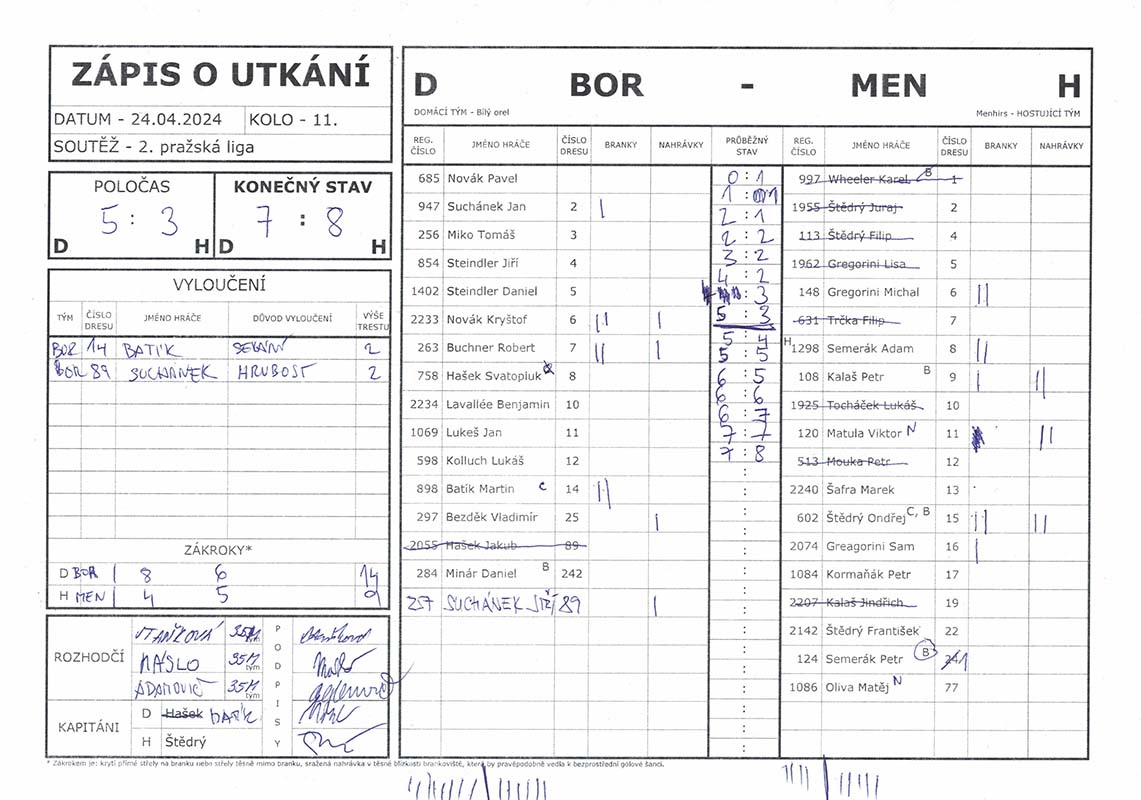 ZÁPIS O UTKÁNÍ
DATUM - 24.04.2024 KOLO - 11.
SOUTĚŽ - 2. pražská liga
POLOČAS KONEČNÝ STAV
5 : 3 7 : 8
D H D H
VYLOUČENÍ
TÝM ČÍSLO DRESU JMÉNO HRÁČE DŮVOD VYLOUČENÍ VÝŠE TRESTU
BOR 14 BATÍK SEKÁNÍ 2
BOR 89 SUCHÁNEK HRUBOST 2
ZÁKROKY*
D BOR 8 6 14
H MEN 4 5 9
ROZHODČÍ
STAŇKOVÁ 35M tým
MÁSLO 35M tým
ADAMOVIČ 35M tým
PODPISY
KAPITÁNI
D Hašek BATÍK
H Štědrý
D BOR - MEN H
DOMÁCÍ TÝM - Bílý orel Menhirs - HOSTUJÍCÍ TÝM
REG. ČÍSLO JMÉNO HRÁČE ČÍSLO DRESU BRANKY NAHRÁVKY PRŮBĚŽNÝ STAV REG. ČÍSLO JMÉNO HRÁČE ČÍSLO DRESU BRANKY NAHRÁVKY
685 Novák Pavel
947 Suchánek Jan 2 |
256 Miko Tomáš 3
854 Steindler Jiří 4
1402 Steindler Daniel 5
2233 Novák Kryštof 6 || |
263 Buchner Robert 7 || |
758 Hašek Svatopluk 8
2234 Lavallée Benjamin 10
1069 Lukeš Jan 11
598 Kolluch Lukáš 12
898 Batík Martin C 14 ||
297 Bezděk Vladimír 25 |
2055 Hašek Jakub 89
284 Minár Daniel B 242
257 SUCHÁNEK JIŘÍ 89 |
0 : 1
1 : 1
2 : 1
2 : 2
3 : 2
4 : 2
: 3
5 : 3
5 : 4
5 : 5
6 : 5
6 : 6
6 : 7
7 : 7
7 : 8
997 Wheeler Karel B 1
1955 Štědrý Juraj 2
113 Štědrý Filip 4
1962 Gregorini Lisa 5
148 Gregorini Michal 6 ||
631 Trčka Filip 7
H 1298 Semerák Adam 8 ||
108 Kalaš Petr B 9 | ||
1925 Tocháček Lukáš 10
120 Matula Viktor N 11 ||
513 Mouka Petr 12
2240 Šafra Marek 13
602 Štědrý Ondřej C, B 15 || ||
2074 Greagorini Sam 16 |
1084 Kormaňák Petr 17
2207 Kalaš Jindřich 19
2142 Štědrý František 22
124 Semerák Petr B 241
1086 Oliva Matěj N 77
* Zákrokem je: krytí přímé střely na branku nebo střely těsně mimo branku, sražená nahrávka v těsné blízkosti brankoviště, která by pravděpodobně vedla k bezprostřední gólové šanci.